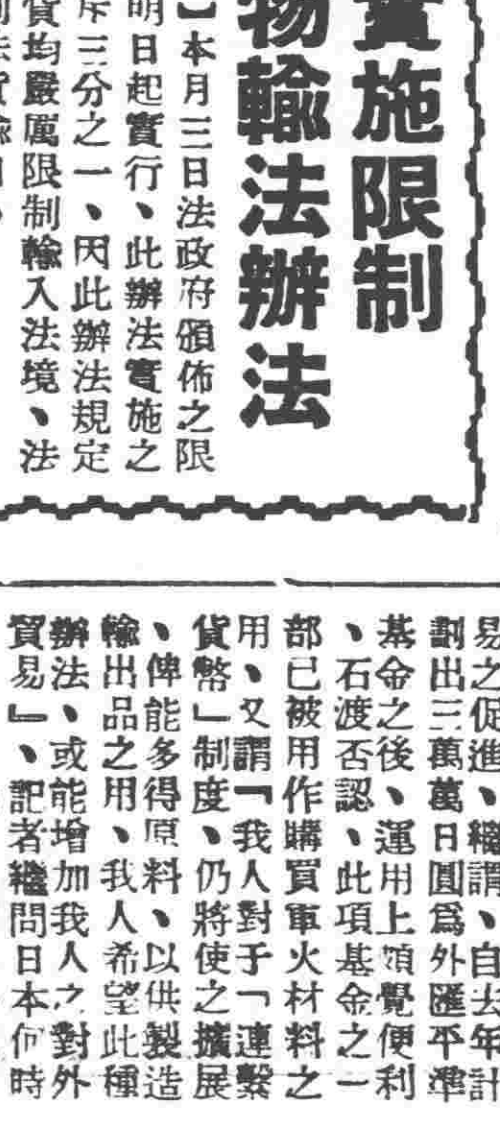 實施限制
物輸法辦法
】本月三日法政府頒佈之限
明日起實行、此辦法實施之
斥三分之一、因此辦法規定
貨均嚴厲限制輸入法境、法
易之促進、繼謂、自去年計
劃出三萬萬日圓爲外匯平準
基金之後、運用上頗覺便利
、石渡否認、此項基金之一
部已被用作購買軍火材料之
用、又謂『我人對于「連繫
貨幣」制度、仍將使之擴展
、俾能多得原料、以供製造
輸出品之用、我人希望此種
辦法、或能增加我人之對外
貿易』、記者繼問日本何時